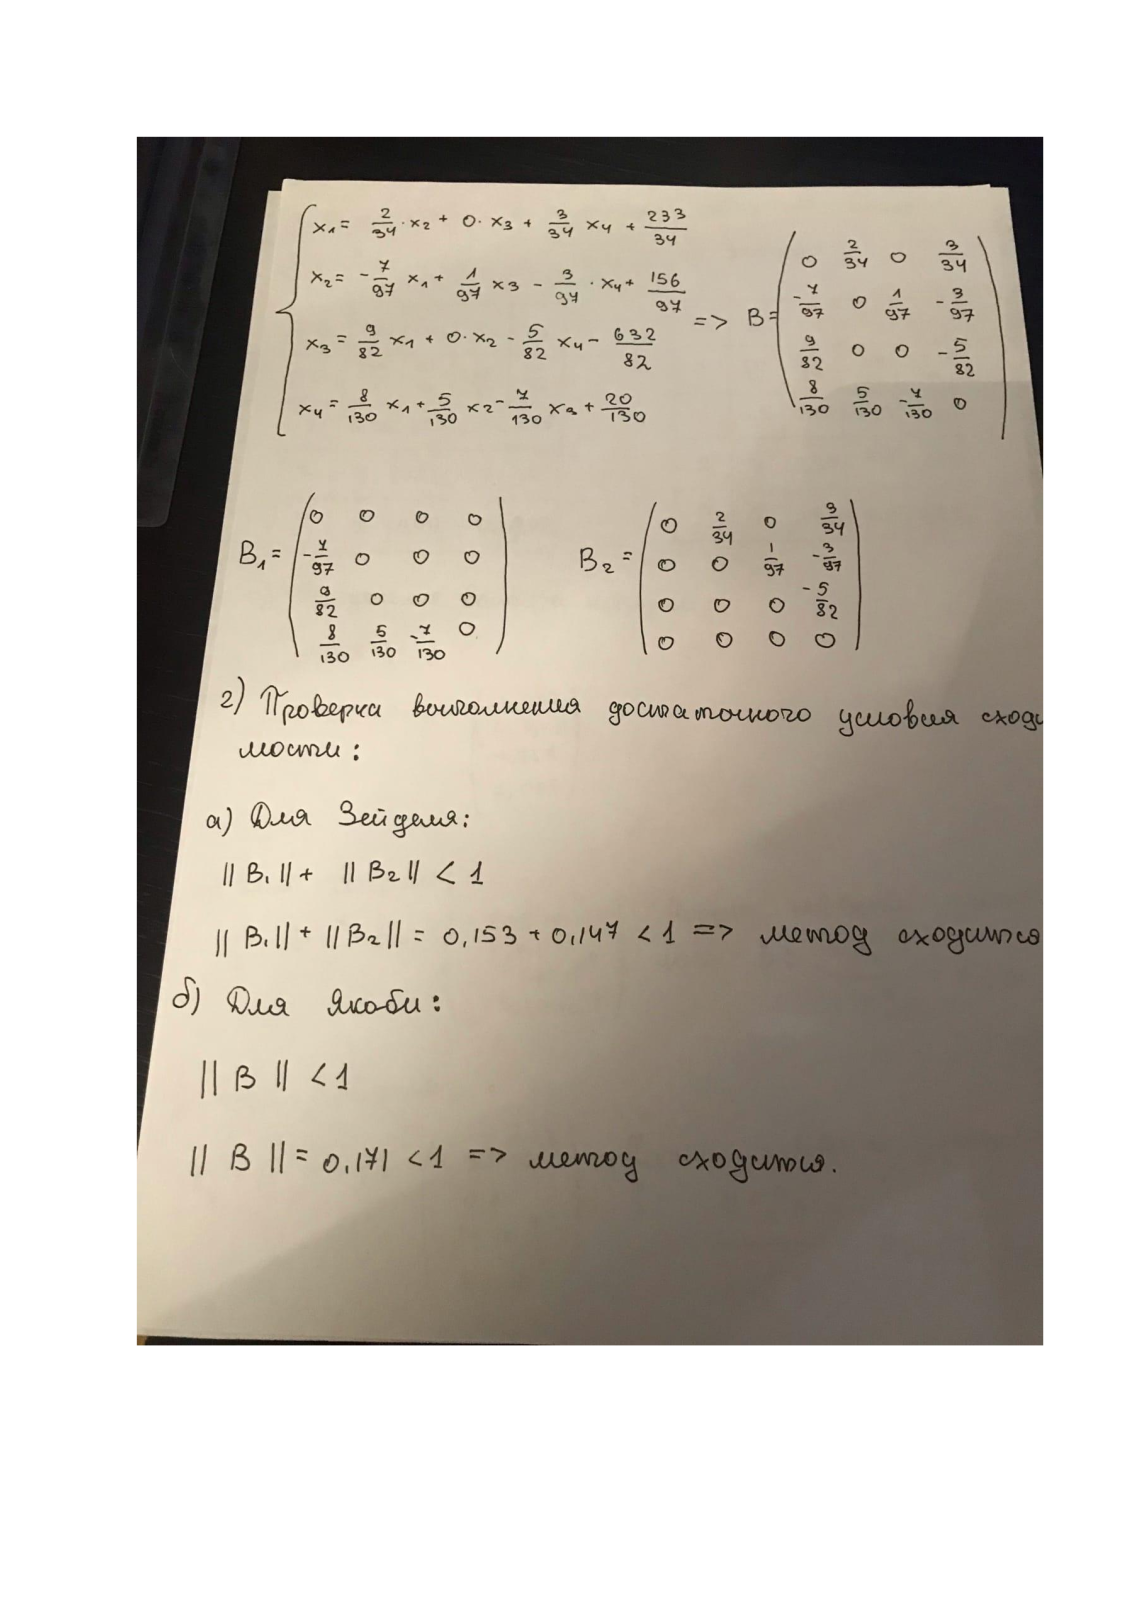 x₁ = 2/34 · x₂ + 0 · x₃ + 3/34 x₄ + 233/34
x₂ = -7/97 x₁ + 1/97 x₃ - 3/97 · x₄ + 156/97
x₃ = 9/82 x₁ + 0 · x₂ - 5/82 x₄ - 632/82
x₄ = 8/130 x₁ + 5/130 x₂ - 7/130 x₃ + 20/130
=> B =
0 2/34 0 3/34
-7/97 0 1/97 -3/97
9/82 0 0 -5/82
8/130 5/130 -7/130 0
B₁ =
0 0 0 0
-7/97 0 0 0
9/82 0 0 0
8/130 5/130 -7/130 0
B₂ =
0 2/34 0 3/34
0 0 1/97 -3/97
0 0 0 -5/82
0 0 0 0
г) Проверка выполнения достаточного условия сходи
мости:
а) Для Зейделя:
|| B₁ || + || B₂ || < 1
|| B₁ || + || B₂ || = 0,153 + 0,147 < 1 => метод сходится
б) Для Якоби:
|| B || < 1
|| B || = 0,171 < 1 => метод сходится.